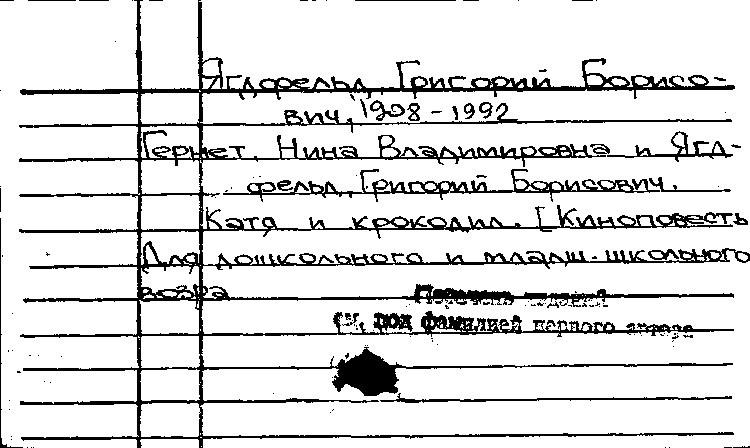 Ягдфельд, Григорий Борисо-
вич, 1908-1992
Гернет, Нина Владимировна и Ягд-
фельд, Григорий Борисович.
Катя и крокодил. [Киноповесть
Для дошкольного и младш. школьного
возра
Перечень изданий
см. под фамилией первого автора